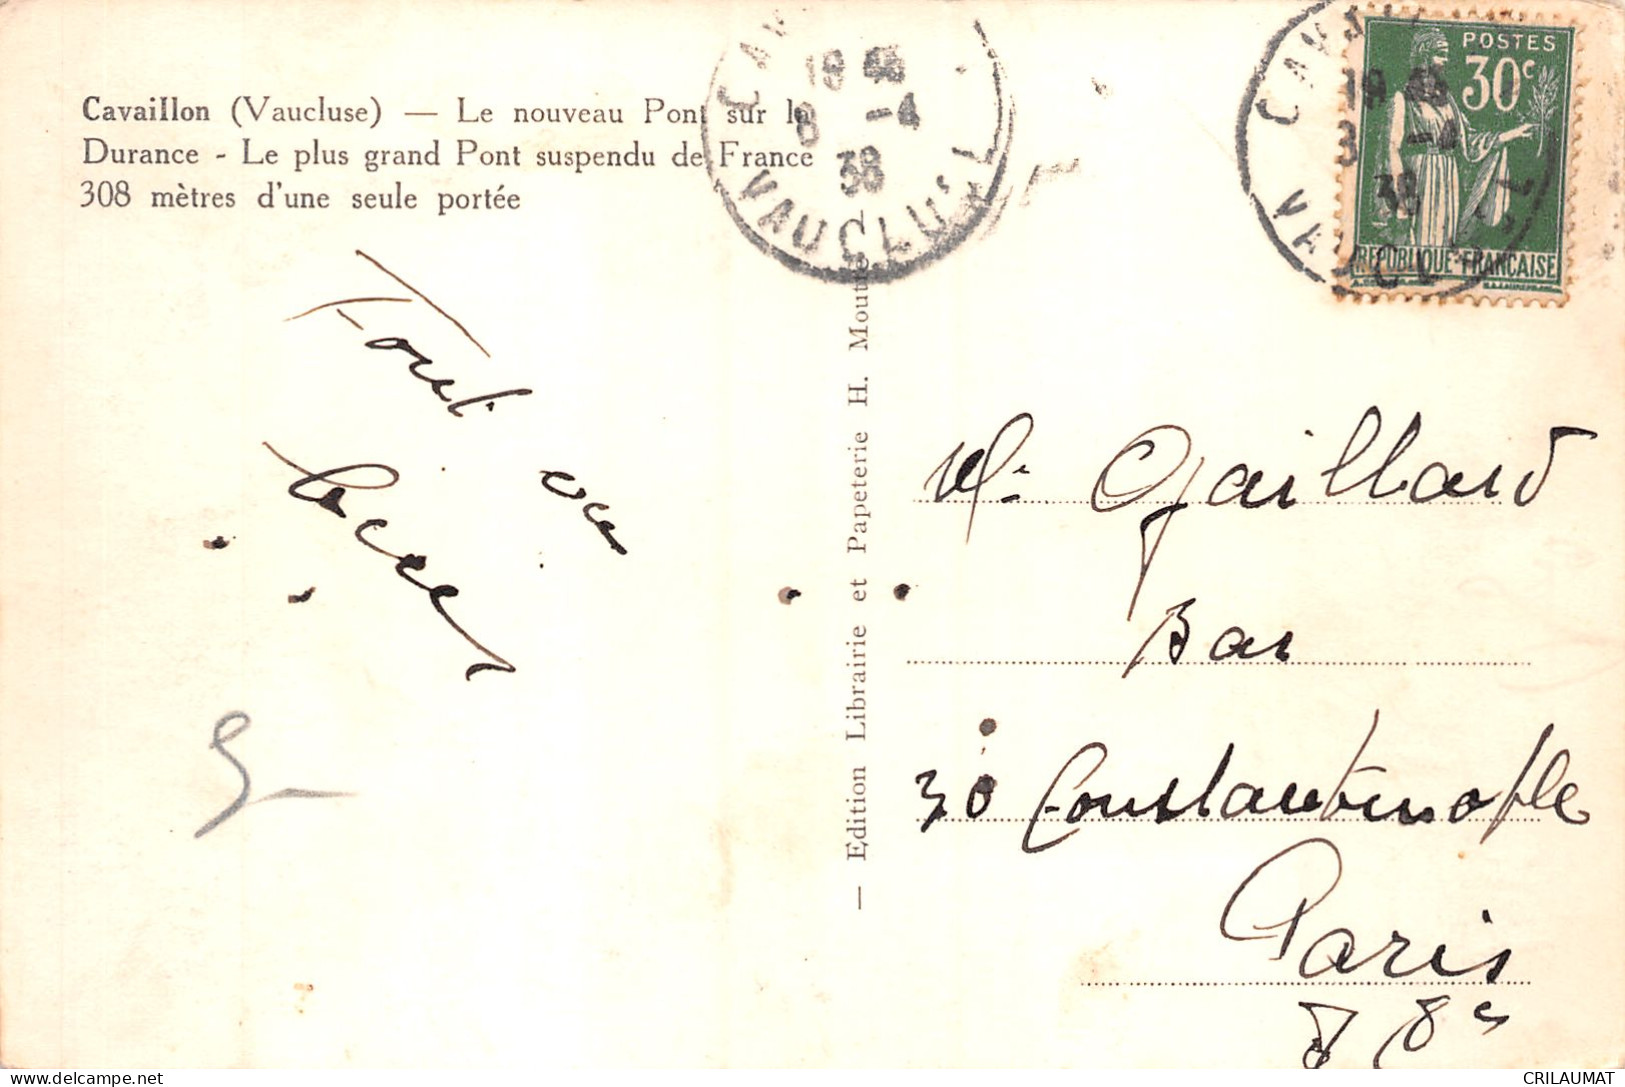 Cavaillon (Vaucluse) — Le nouveau Pont sur la
Durance - Le plus grand Pont suspendu de France
308 mètres d'une seule portée
19 45
8 -4
38
VAUCLUSE
POSTES
30c
REPUBLIQUE FRANÇAISE
— Edition Librairie et Papeterie H. Moutte
Mr Gaillard
Bar
30 Constantinople
Paris
8e
CRILAUMAT